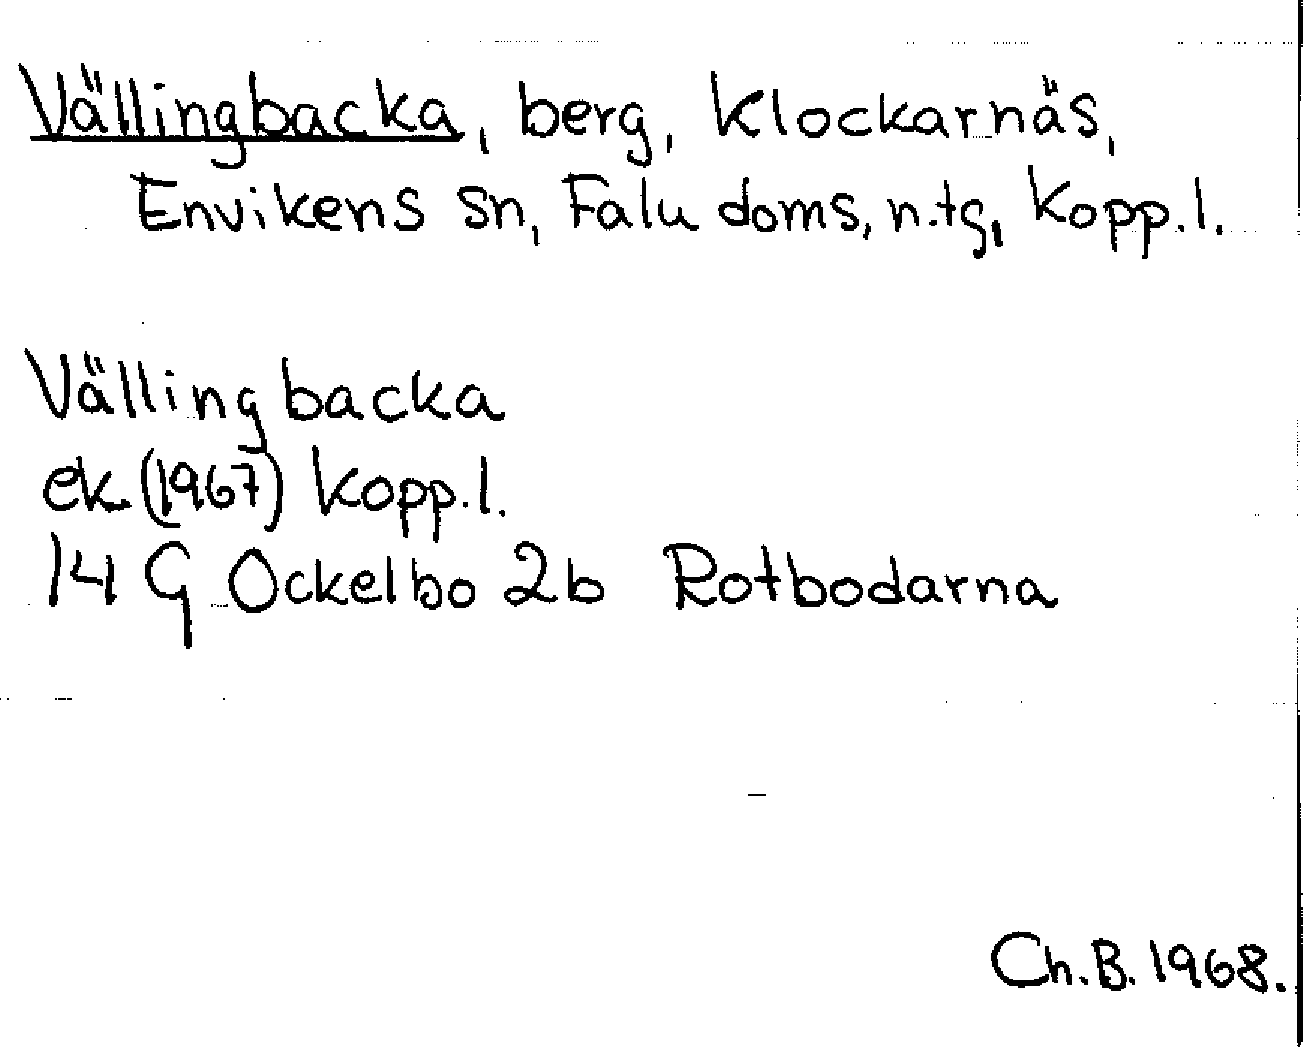 Vällingbacka, berg, Klockarnäs,
Envikens sn, Falu doms, n.tg, Kopp.l.
Vällingbacka
ek. (1967) Kopp.l.
14 G Ockelbo 2b Rotbodarna
Ch.B. 1968.